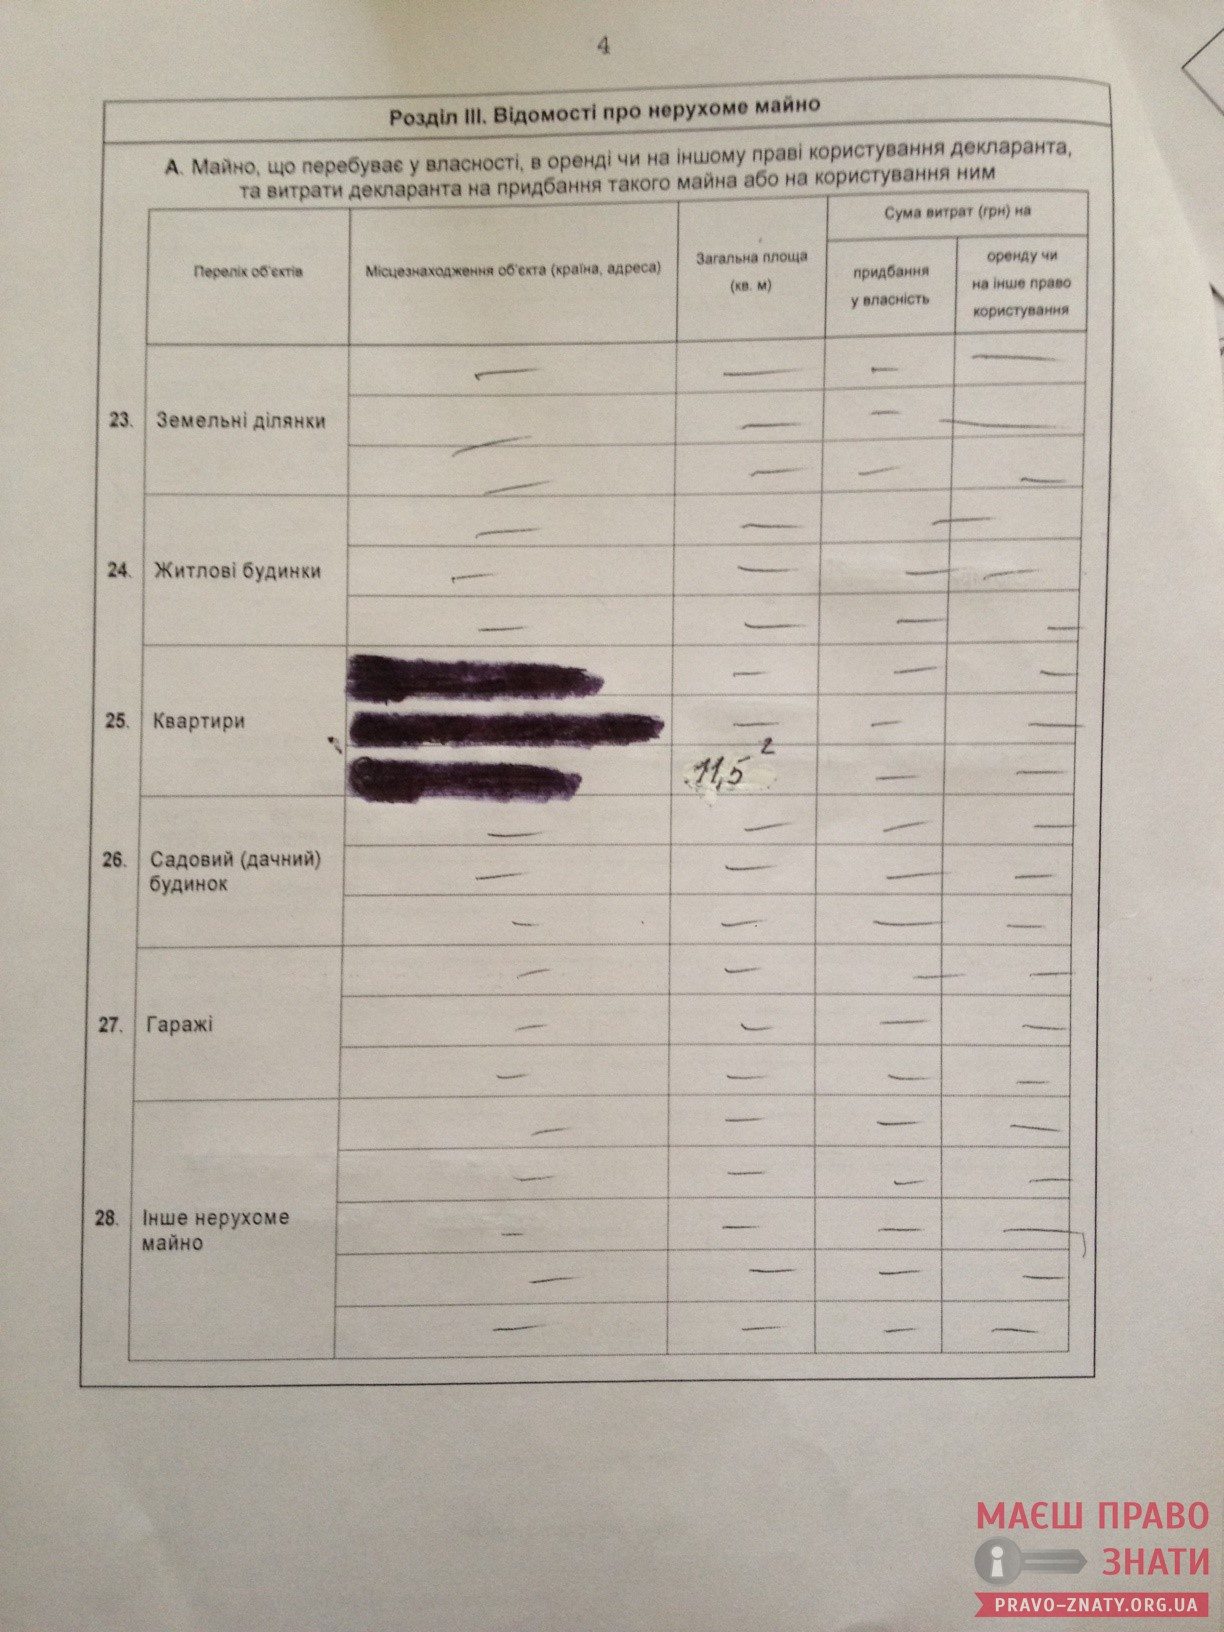 4
Розділ III. Відомості про нерухоме майно
А. Майно, що перебуває у власності, в оренді чи на іншому праві користування декларанта,
та витрати декларанта на придбання такого майна або на користування ним
Перелік об'єктів
Місцезнаходження об'єкта (країна, адреса)
Загальна площа
(кв. м)
Сума витрат (грн) на
придбання
у власність
оренду чи
на інше право
користування
23. Земельні ділянки
24. Житлові будинки
25. Квартири
11,5 2
26. Садовий (дачний)
будинок
27. Гаражі
28. Інше нерухоме
майно
МАЄШ ПРАВО
ЗНАТИ
PRAVO-ZNATY.ORG.UA